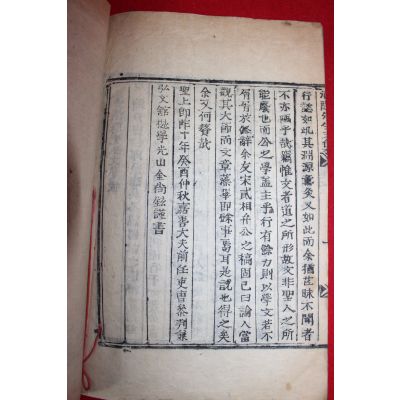 行誼如此其淵源實矣又如此而余猶茫昧不聞者
不亦陋乎哉竊惟文者道之所形故文非聖人之所
能廢也而公之學蓋主乎行有餘力則以學文若不
屑屑於辭余友宋貳相弁公之稿固已曰論人當
觀其大節而文章藻華卽餘事焉耳是說也得之矣
余又何贅哉
聖上卽阼十年癸酉仲秋嘉善大夫前任吏曹參判兼
弘文館提學光山金尙鉉謹書